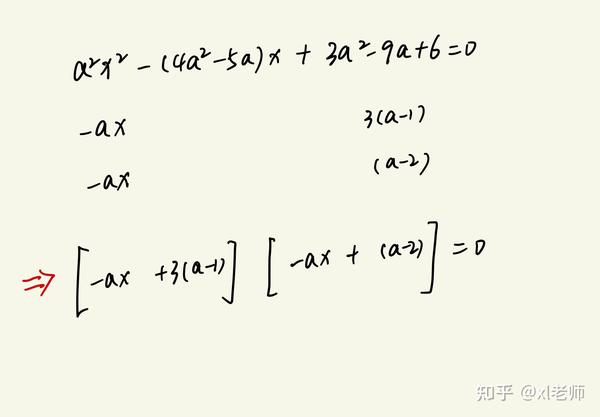 a²x² - (4a²-5a)x + 3a²-9a+6=0
-ax 3(a-1)
-ax (a-2)
⇒ [-ax +3(a-1)] [-ax + (a-2)] = 0
知乎 @xl老师